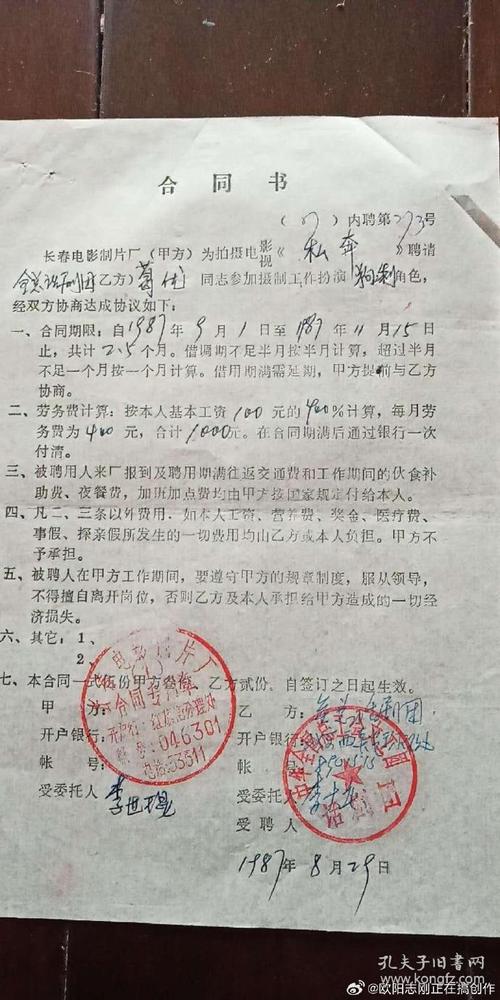 合同书
（87）内聘第273号
长春电影制片厂（甲方）为拍摄电影视《私奔》聘请
全总话剧团（乙方）葛优同志参加摄制工作扮演狗剩角色，
经双方协商达成协议如下：
一、合同期限：自1987年9月1日至1987年11月15日
止，共计2.5个月。借调期不足半月按半月计算，超过半月
不足一个月按一个月计算。借用期满需延期，甲方提前与乙方
协商。
二、劳务费计算：按本人基本工资100元的400%计算，每月劳
务费为400元，合计1000元。在合同期满后通过银行一次
付清。
三、被聘用人来厂报到及聘用期满往返交通费和工作期间的伙食补
助费、夜餐费，加班加点费均由甲方按国家规定付给本人。
四、凡二、三条以外费用，如本人工资、营养费、奖金、医疗费、
事假、探亲假所发生的一切费用均由乙方或本人负担。甲方不
予承担。
五、被聘人在甲方工作期间，要遵守甲方的规章制度，服从领导，
不得擅自离开岗位，否则乙方及本人承担给甲方造成的一切经
济损失。
六、其它：1、
2、
七、本合同一式伍份甲方叁份，乙方贰份。自签订之日起生效。
甲方：
乙方：全总话剧团
开户银行：
开户银行：
帐号：
帐号：
电影制片厂
合同专用章
046301
电话：53311
话剧团
受委托人 李世琨
受委托人
受聘人
1987年8月29日
孔夫子旧书网
www.kongfz.com
@欧阳志刚正在搞创作